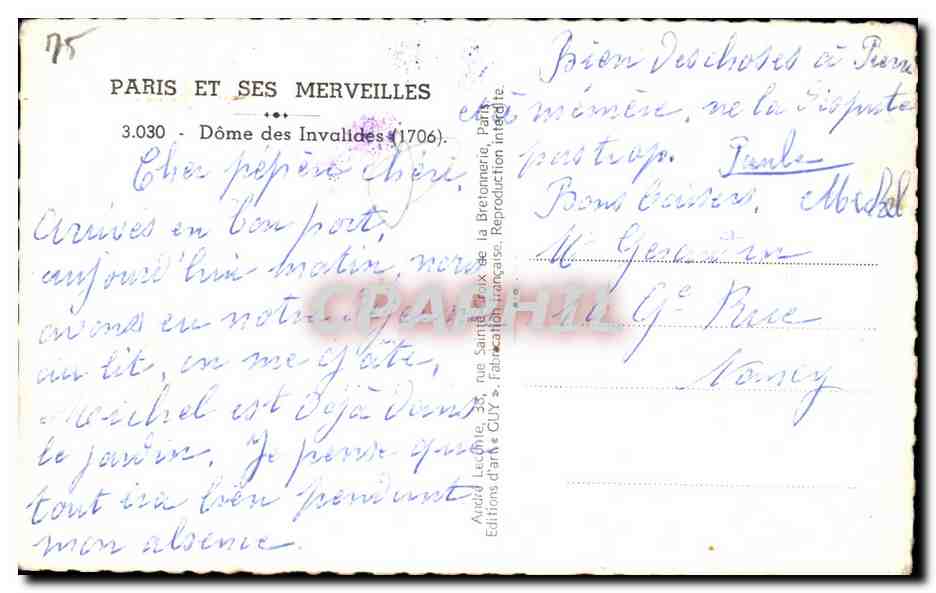 75
PARIS ET SES MERVEILLES
3.030 - Dôme des Invalides (1706).
Cher pépère chéri,
Arrivés en bon port,
aujourd'hui matin, nous
avons eu notre déjeuner
au lit, on me gâte,
Michel est déjà dans
le jardin. Je pense que
tout ira bien pendant
mon absence.
André Leconte, 38, rue Sainte-Croix de la Bretonnerie, Paris
Editions d'art « GUY ». Fabrication française. Reproduction interdite.
Bien des choses à Pierre
et à mémère, ne la dispute
pas trop. Paule
Bons baisers. Michel
Mr
Gde Rue
Nancy
CPARPHIL